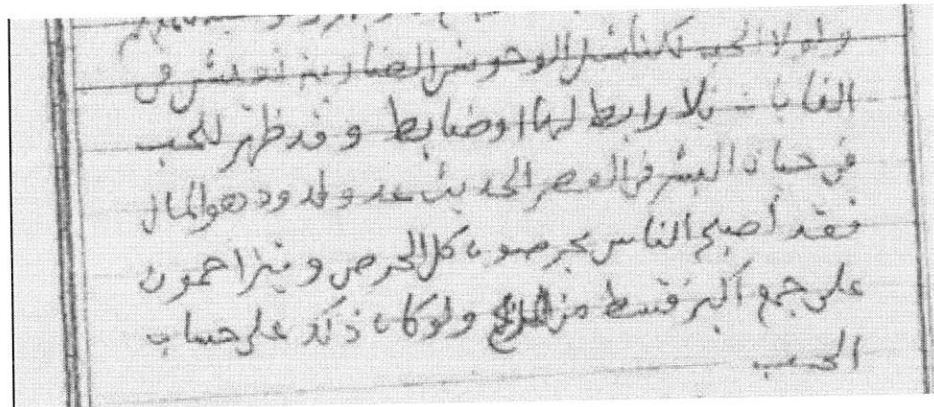 ولولا الحب لكنا مثل الوحوش الضارية نعيش في
الغابات بلا رابط لها اوضابط وقد ظهر للحب
في حياة البشر في العصر الحديث عدو لدود هو المال
فقد أصبح الناس يحرصون كل الحرص ويتزاحمون
على جمع أكبر قسط من ولو كان ذلك على حساب
الحب